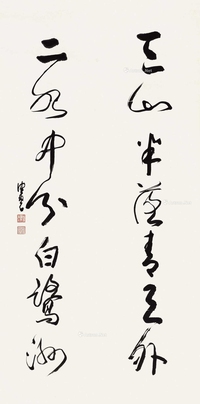 三山半落青天外
二水中分白鹭洲